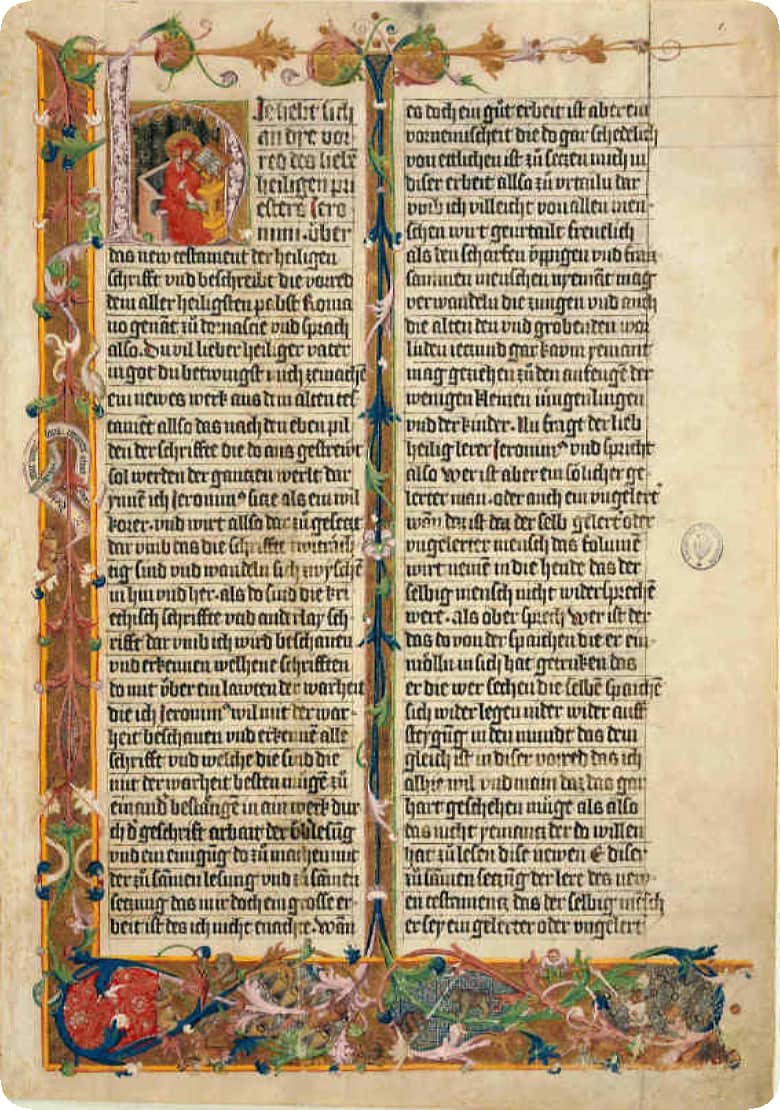 Ie hebt sich
an dye vor-
red des liebē
heiligen pri
esters Jero
nimi. über
das new testament der heiligen
schrifft vnd beschreibt die vorred
dem aller heiligsten pabst Roma
no genāt zů domascie vnd sprach
also. Du vil lieber heiliger vater
in got du betwingst mich zemachē
ein newes werk aus dem alten tes
tamēt allso das nach den eben pil
den der schrifft die do aus gestrewt
sol werden der gantzen werlt dar
ynnē ich Jeronimꝰ sitze als ein wil
korer. vnd wirt allso dar zů gesetzt
dar vmb das die schriffte zwiträch
tig sind vnd wandeln sich zwyschē
in hin vnd her. als do sind die kri
echisch schriffte vnd anderlay sch
riffte dar vmb ich wird beschauen
vnd erkennen welhene schrifften
do mit über ein lawten der warheit
die ich Jeronimꝰ wil mit der war-
heit beschauen vnd erkennē alle
schrifft vnd welche die sind die
mit der warheit besten mügē zů
einand besamgē in ain werk dur
ch d̕ geschrift arbait der
vnd ein einigūg do zů machen mit
der zů samen lesung vnd zů samen
setzung das mir doch ein grosse er-
beit ist des ich nicht enachte. Wān
es doch ein gůt erbeit ist aber ein
vornemischeit die do gar schedelich
von etlichen ist zů setzen mich in
diser erbeit allso zů vrteiln dar
vmb ich villeicht von allen men-
schen wirt geurtailt freuelich
als den scharfen üppigen vnd
sammen menschen nyemāt mag
verwandeln die zungen vnd auch
die alten den vnd grobenden wor
lüden ietzund gar kaum yemant
mag geziehen zů den anfenge der
wenigen kleinen iüngenlingen
vnd der kinder. Nu fragt der lieb
heilig lerer Jeronimꝰ vnd spricht
also Wer ist aber ein sölicher ge-
lerter man. oder auch ein vngelert̕
wān das ist das der selb gelert oder
vngelerter mensch das folumē
wirt nemē in die hende das der
selbig mensch nicht widersprechē
were. als ober sprech Wer ist der
das do von der spaichen die er ein-
mölln in sich hat getruken das
er die wer sechen die selbē spaichē
sich wider legen wider auff
steygūg in den mundt das dem
gleich ist in diser vorred das ich
albie wil vnd main daz das gar
hart geschehen müge als also
das nicht yemantz der do willen
hat zů lesen dise newen E diser
zů samen setzūg der lere des new-
en testamentz das der selbig mēsch
er sey ein gelerter oder vngelert̕